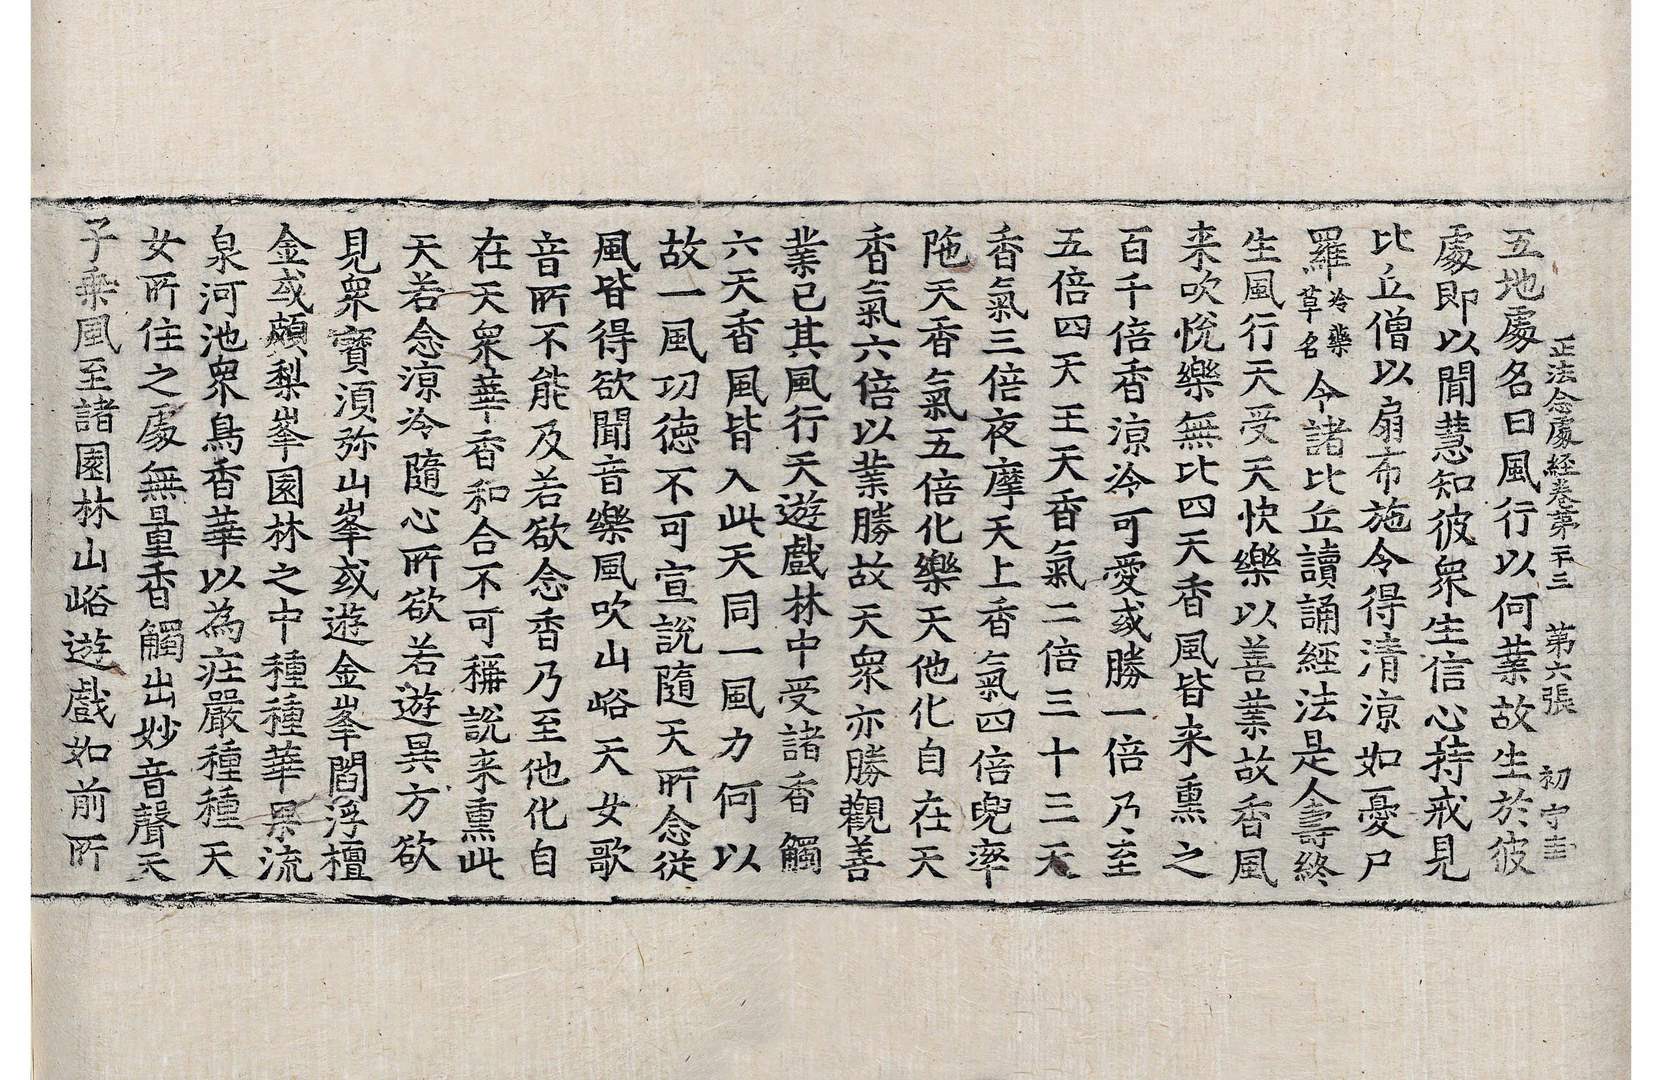 正法念處經卷第二十三　第六張　初字号
五地處名曰風行以何業故生於彼
處即以聞慧知彼衆生信心持戒見
比丘僧以扇布施令得清涼如憂尸
羅冷藥草名今諸比丘讀誦經法是人壽終
生風行天受天快樂以善業故香風
来吹悅樂無比四天香風皆来熏之
百千倍香涼冷可愛或勝一倍乃至
五倍四天王天香氣二倍三十三天
香氣三倍夜摩天上香氣四倍兜率
陁天香氣五倍化樂天他化自在天
香氣六倍以業勝故天衆亦勝觀善
業已其風行天遊戲林中受諸香觸
六天香風皆入此天同一風力何以
故一風功德不可宣說隨天所念從
風皆得欲聞音樂風吹山峪天女歌
音所不能及若欲念香乃至他化自
在天衆華香和合不可稱說来熏此
天若念涼冷隨心所欲若遊異方欲
見衆寶湏弥山峯或遊金峯閻浮檀
金或頗梨峯園林之中種種華果流
泉河池衆鳥香華以為莊嚴種種天
女所住之處無量香觸出妙音聲天
子乗風至諸園林山峪遊戲如前所